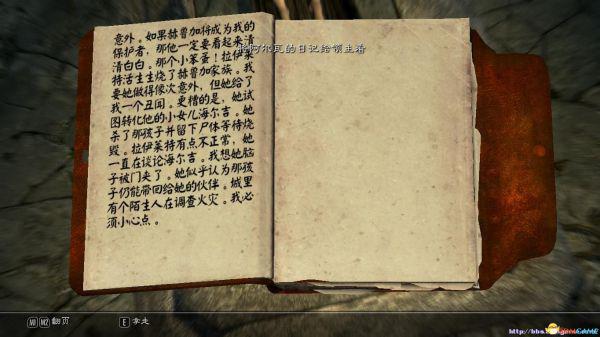 意外。如果赫鲁加将成为我的
保护者，那他一定要看起来清
清白白。那个小笨蛋！拉伊莱
特活生生烧了赫鲁加家族。我
要她做得像次意外，但她给了
我一个丑闻。更糟的是，她试
图转化他的小女儿海尔吉。她
杀了那孩子并留下尸体等待烧
毁。拉伊莱特有点不正常，她
一直在谈论海尔吉。我想她脑
子被门夹了。她似乎认为那孩
子仍能带回给她的伙伴。城里
有个陌生人在调查火灾。我必
须小心点。
阿尔瓦的日记给领主看
M1 M2 翻页
E 拿走